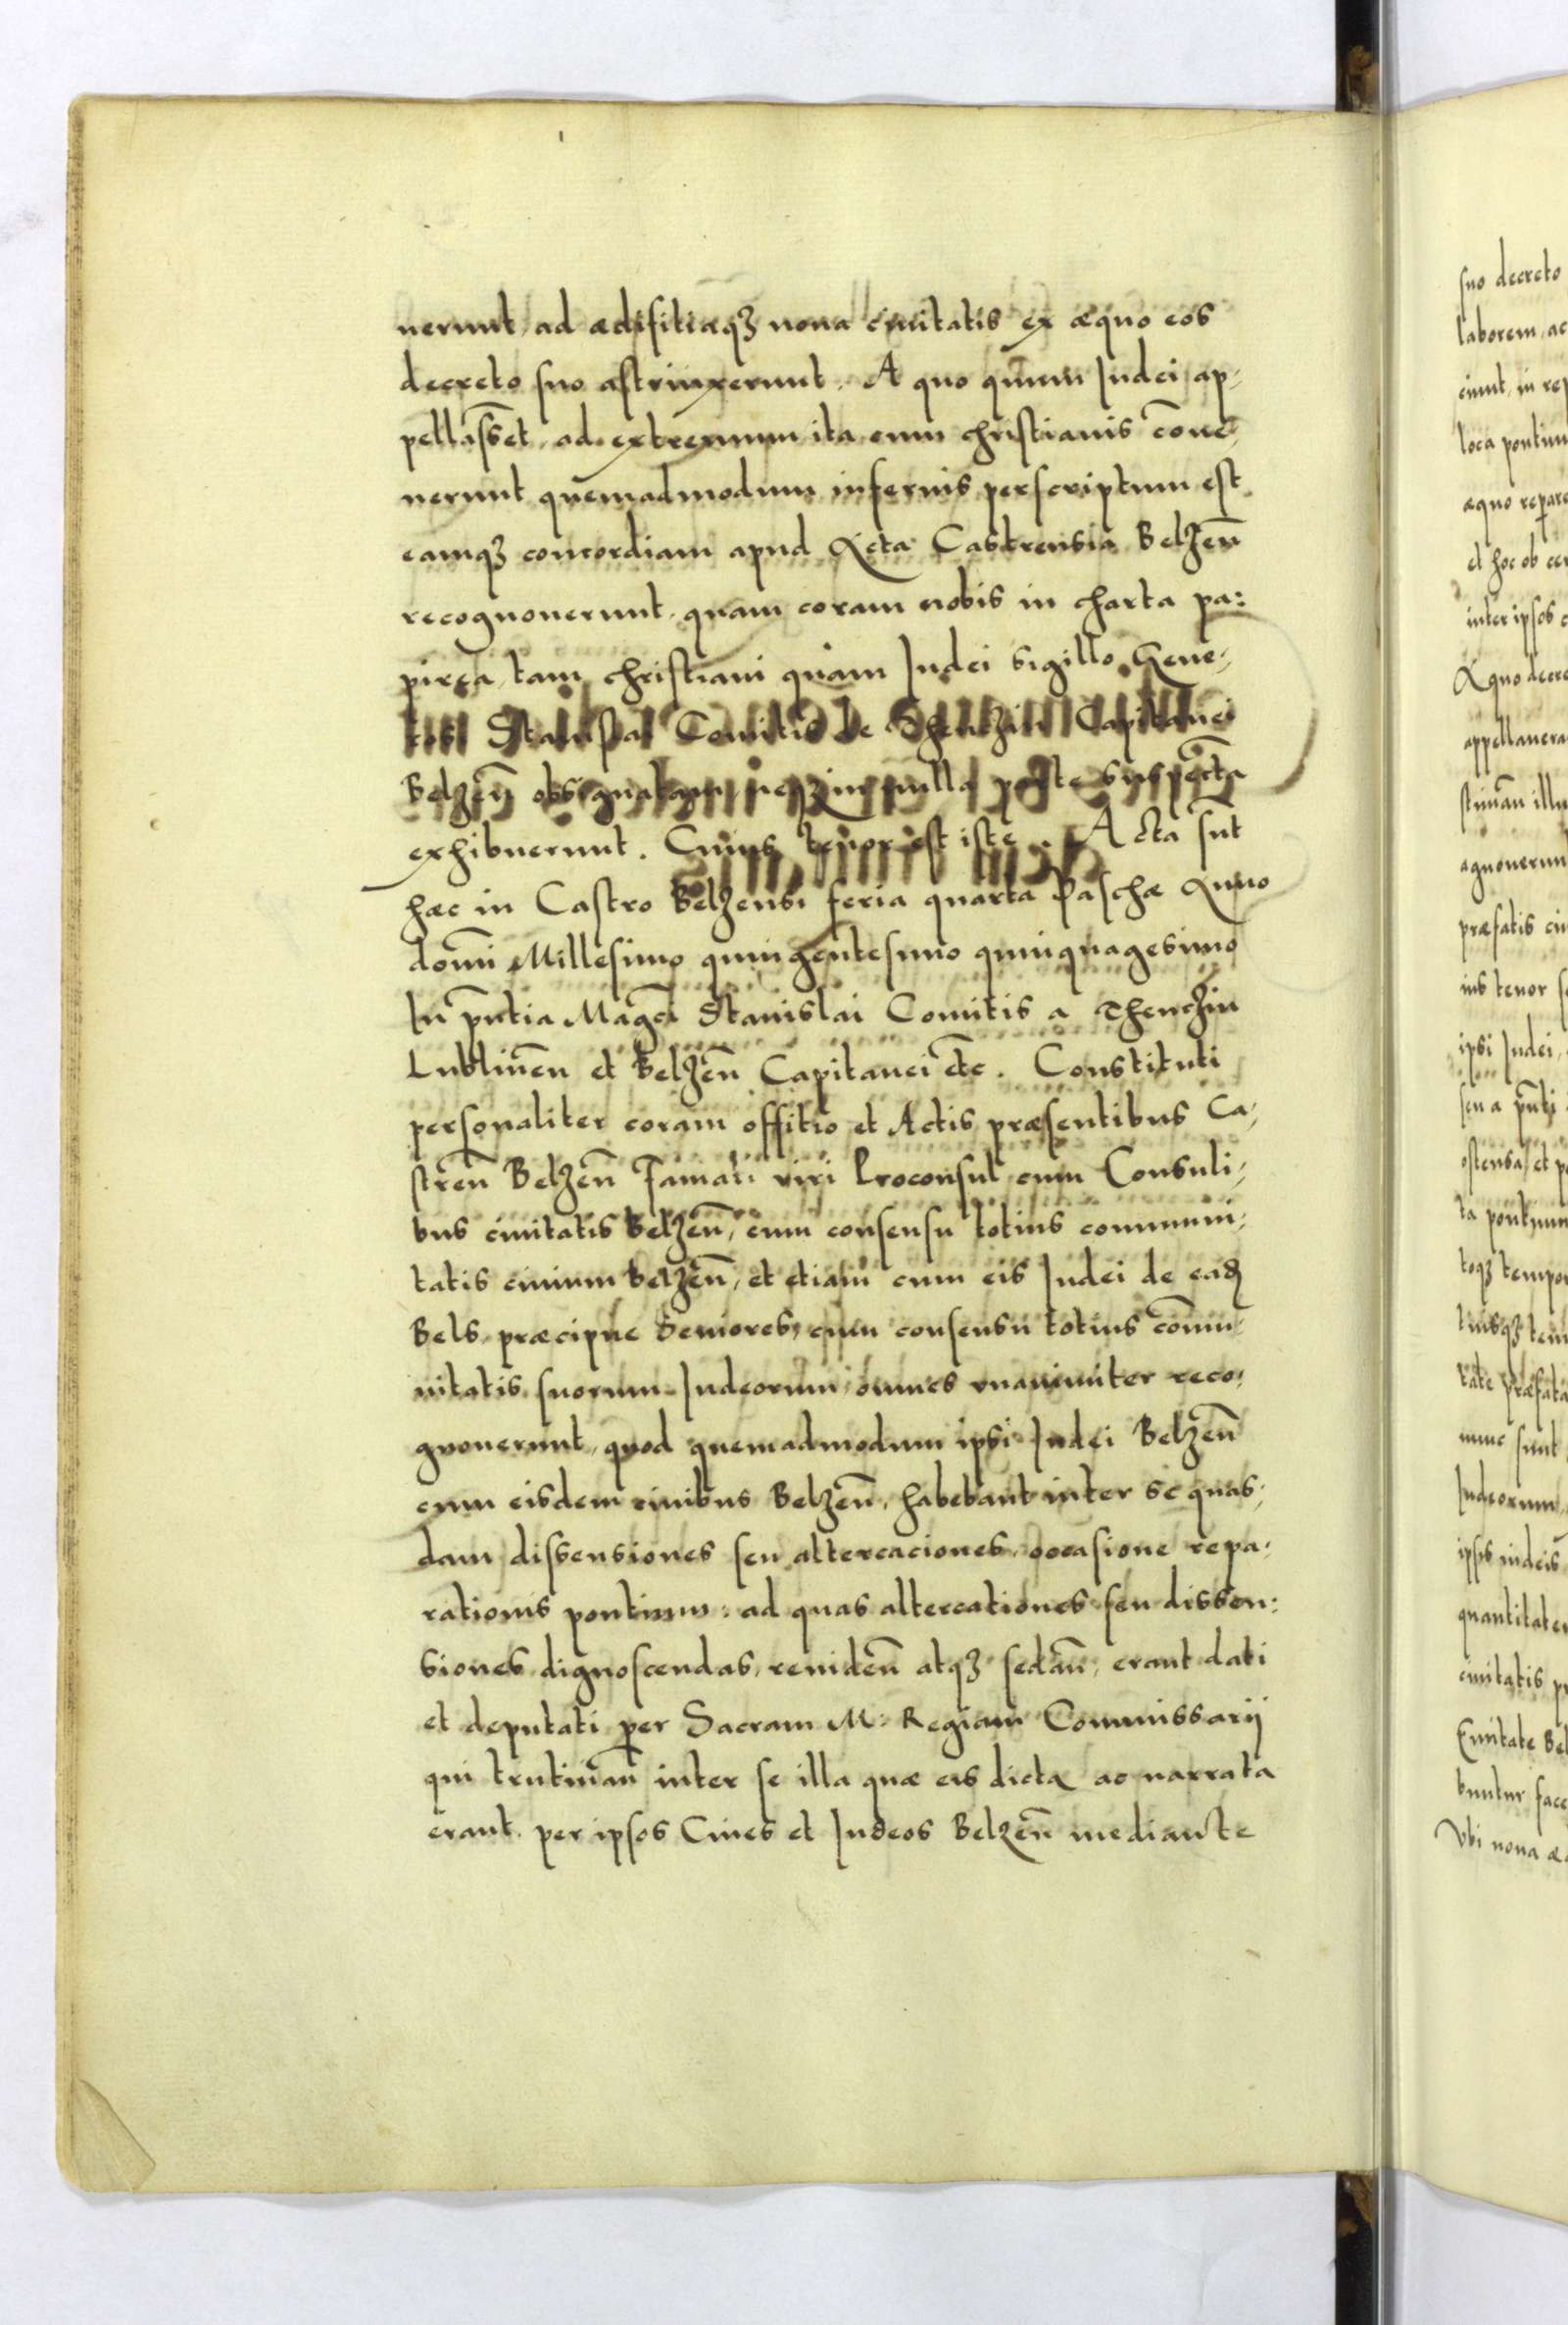 nerunt, ad ædifitiaqʒ noua ciuitatis ex æquo eos
decreto suo astrinxerunt. A quo quum Iudei ap-
pellasse͂t, ad extremum ita cum christianis co͂ue
nerunt quemadmodum inferius perscriptum est
eamqʒ concordiam apud Acta Castrensia Belzen͂
recognouerunt, quam coram nobis in charta pa:
pirea, tam christiani quàm Iudei sigillo Gene-
Comitis de Capitanei
Belzen͂ obsignatam, neqʒ in nulla parte suspecta
exhibuerunt. Cuius tenor est iste. Acta su͂t
hæc in Castro Belzensi feria quarta Paschæ Anno
dom͂i Millesimo quingentesimo quinquagesimo
In pn͂tia Mag͂ci Stanislai Comitis a Thenchin
Lublinen͂ et Belzen͂ Capitanei et͂c. Constituti
personaliter coram offitio et Actis præsentibus Ca-
stren͂ Belzen͂ Famati viri Proconsul cum Consuli-
bus ciuitatis Belzen͂, cum consensu totius communi-
tatis ciuium Belzen͂, et etiam cum eis Iudei de ead
Bels præcipue Seniores, cum consensu totius com͂u-
nitatis suorum Iudeorum omnes vnanimiter reco-
gnouerunt, quod quemadmodum ipsi Iudei Belzen͂
cum eisdem ciuibus Belzen͂, habebant inter se quas-
dam dissensiones seu altercaciones, occasione repa-
rationis pontium: ad quas altercationes seu dissen:
siones dignoscendas, reuiden͂ atqʒ sedan͂, erant dati
et deputati per Sacram M: Regiam Commissarij
qui trutinan͂ inter se illa quæ eis dicta ac narrata
erant per ipsos Ciues et Iudeos Belzen͂ mediante
suo decreto
laborem, ac
ciunt, in rep
loca pontiu
æquo repar
et hoc ob cer
inter ipsos c
A quo decre
appellauera
stiman͂ illu
agnouerun
præfatis ciu
ius tenor s
ipsi Iudei,
seu a pn͂ti
ostensa, et p
ta pontium
toqʒ tempor
rate præfata
nunc sunt
Iudeorum,
ipsis iudeis
quantitatem
ciuitatis pr
Ciuitate Bel
buntur face
Vbi noua æ